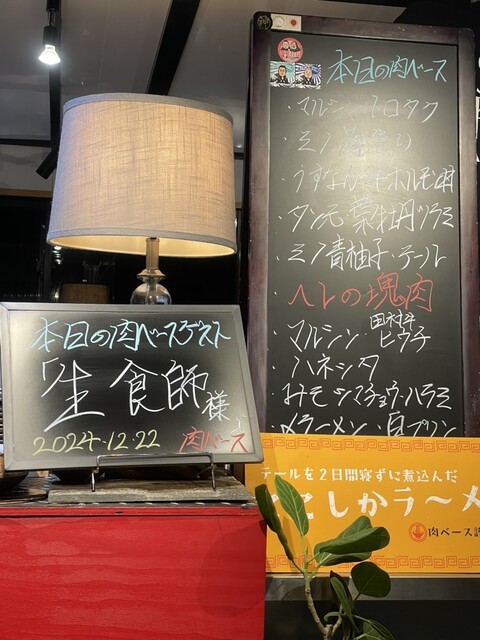 本日の肉ベース
・マルシン トロタク
・ミノ
・うすなが ホルモン
・タンモ 葉牡丹 ツラミ
・ミノ青柚子・テール
ヘレの塊肉
・マルシン・田村牛ヒウチ
・ハネシタ
・みそシマチョウ・ハラミ
・〆ラーメン・白プリン
テールを2日間寝ずに煮込んだ
こしかラ〜メ
肉ベース
本日の肉ベースゲスト
生食師様
2024.12.22 肉ベース